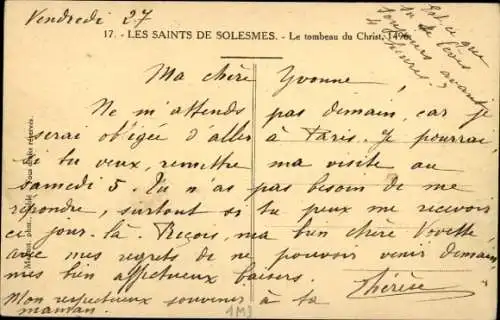 Vendredi 27
17. - LES SAINTS DE SOLESMES. - Le tombeau du Christ, 1496.
Est-ce que
tu te lèves
toujours avant
4 heures ?
Ma chère Yvonne,
Ne m'attends pas demain, car je
serai obligée d'aller à Paris. Je pourrai,
si tu veux, remettre ma visite au
samedi 5. Tu n'as pas besoin de me
répondre, surtout si tu peux me recevoir
ce jour-là. Reçois, ma bien chère Vovette
avec mes regrets de ne pouvoir venir demain
mes bien affectueux baisers.
Thérèse
Mon respectueux souvenir à ta
maman.
Tous droits réservés.
1M3